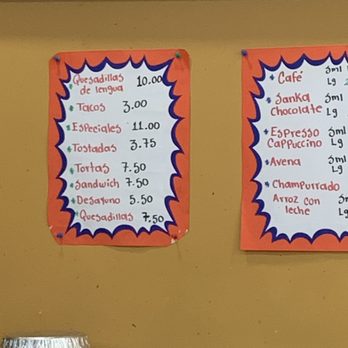 Quesadillas de lengua 10.00
Tacos 3.00
Especiales 11.00
Tostadas 3.75
Tortas 7.50
Sandwich 7.50
Desayuno 5.50
Quesadillas 7.50
Café Sml
Lg
Sanka Sml
Chocolate Lg
Espresso Sml
Cappuccino Lg
Avena Sml
Lg
Champurrado
Arroz con leche Sm
Lg